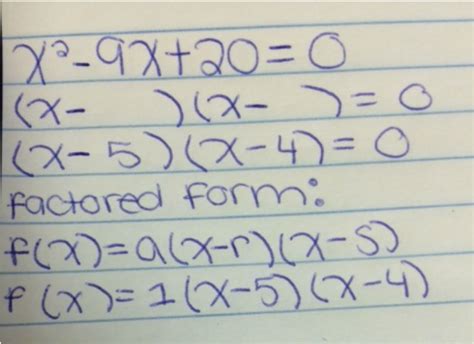 x²-9x+20=0
(x-   )(x-   )=0
(x-5)(x-4)=0
factored form:
f(x)=a(x-r)(x-s)
f(x)=1(x-5)(x-4)